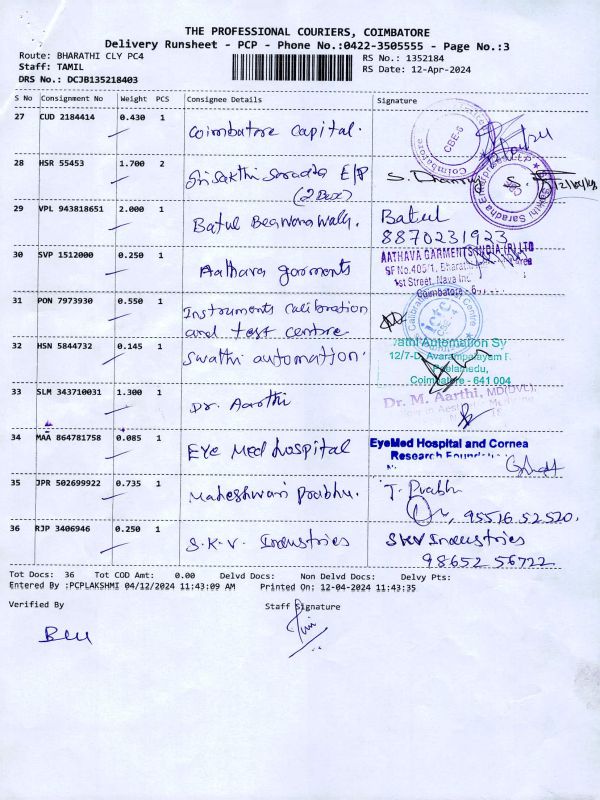 THE PROFESSIONAL COURIERS, COIMBATORE
Delivery Runsheet - PCP - Phone No.:0422-3505555 - Page No.:3
Route: BHARATHI CLY PC4
Staff: TAMIL
DRS No.: DCJB135218403
RS No.: 1352184
RS Date: 12-Apr-2024
S No Consignment No Weight PCS Consignee Details Signature
27 CUD 2184414 0.430 1 Coimbatore Capital.
CBE-6
28 HSR 55453 1.700 2 Srisakthi Sarada E/P
(2 Box)
29 VPL 943818651 2.000 1 Batul Beawarwala. Batul
8870231923
30 SVP 1512000 0.250 1 Aathava garments
AATHAVA GARMENTS INDIA (P) LTD
SF No.405/1, Bharathi
1st Street, Nava Ind
Coimbatore
31 PON 7973930 0.550 1 Instruments calibration
and test centre
32 HSN 5844732 0.145 1 Swathi automation.
athi Automation Sy
12/7-D, Avarampalayam
Peelamedu,
Coimbatore - 641 004
33 SLM 343710031 1.300 1 Dr. Aarthi
Dr. M. Aarthi, MD(DVL),
34 MAA 864781758 0.085 1 Eye Med hospital
EyeMed Hospital and Cornea
Research Foundation
35 JPR 502699922 0.735 1 Maheshwari Prabhu. T. Prabh
95516 52520.
36 RJP 3406946 0.250 1 S.K.V. Industries SKV Industries
98652 56722
Tot Docs: 36 Tot COD Amt: 0.00 Delvd Docs: Non Delvd Docs: Delvy Pts:
Entered By :PCPLAKSHMI 04/12/2024 11:43:09 AM Printed On: 12-04-2024 11:43:35
Verified By Staff Signature